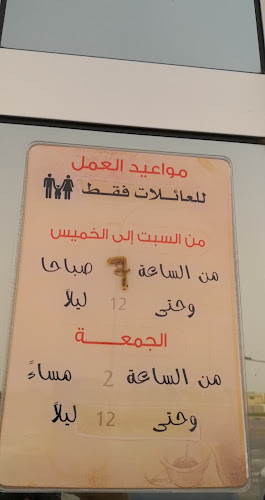 مواعيد العمل
للعائلات فقط
من السبت إلى الخميس
من الساعة 7 صباحا
وحتى 12 ليلاً
الجمعة
من الساعة 2 مساءً
وحتى 12 ليلاً